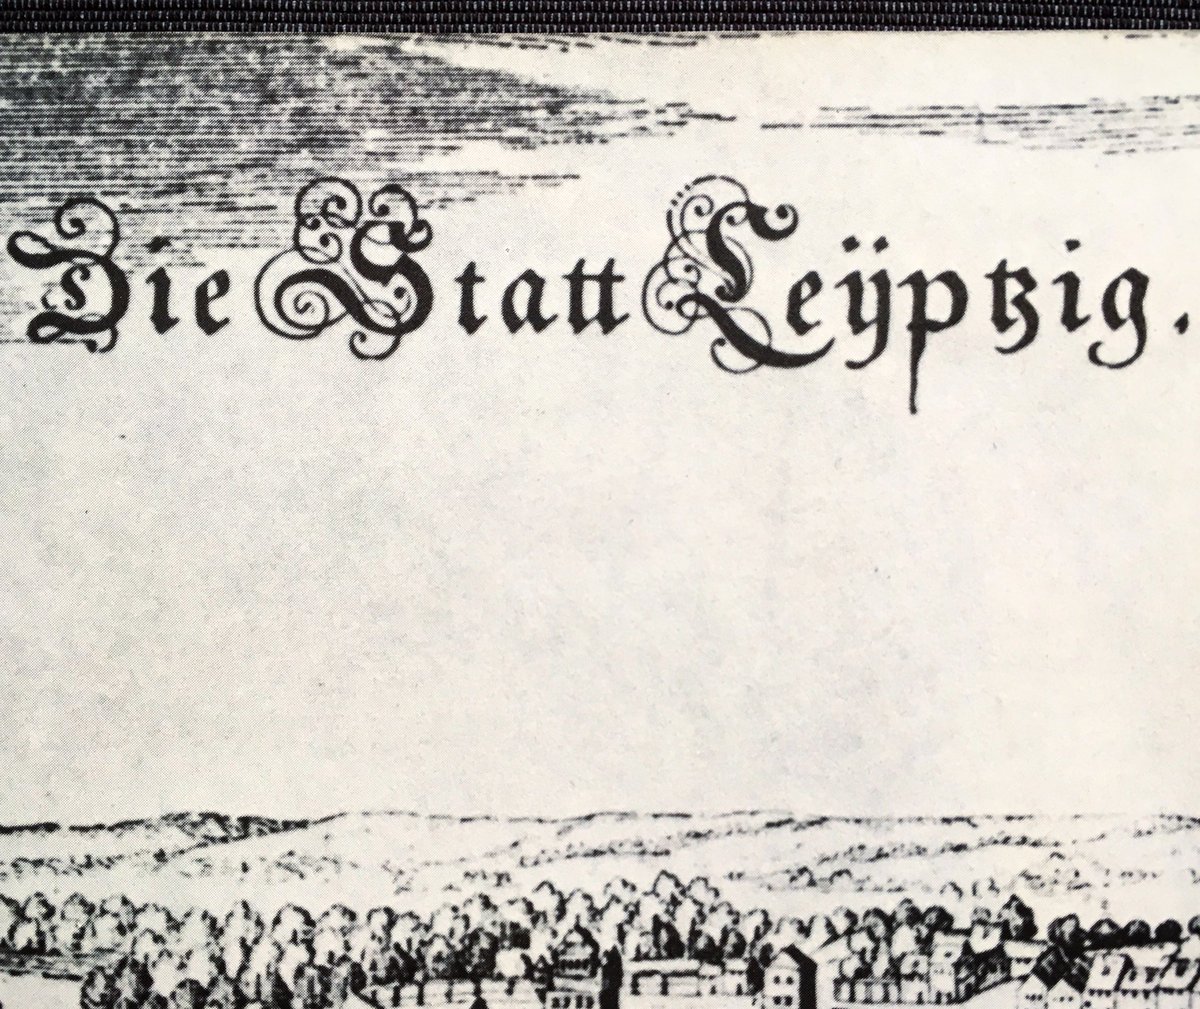 Die Statt Leÿptzig.